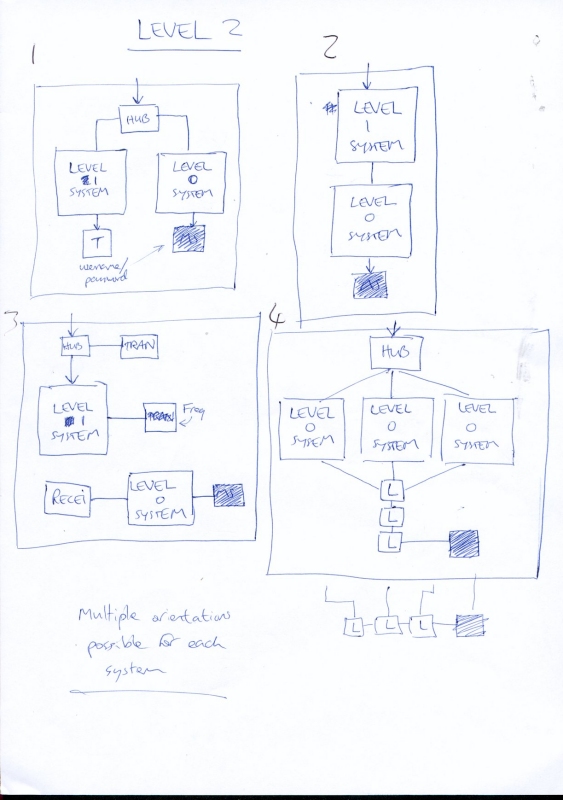 LEVEL 2
1
HUB
LEVEL
1
SYSTEM
LEVEL
0
SYSTEM
T
username/
password
2
LEVEL
1
SYSTEM
LEVEL
0
SYSTEM
3
HUB
TRAN
LEVEL
1
SYSTEM
TRAN
Freq
RECEI
LEVEL
0
SYSTEM
4
HUB
LEVEL
0
SYSTEM
LEVEL
0
SYSTEM
LEVEL
0
SYSTEM
L
L
L
L
L
L
Multiple orientations
possible for each
system